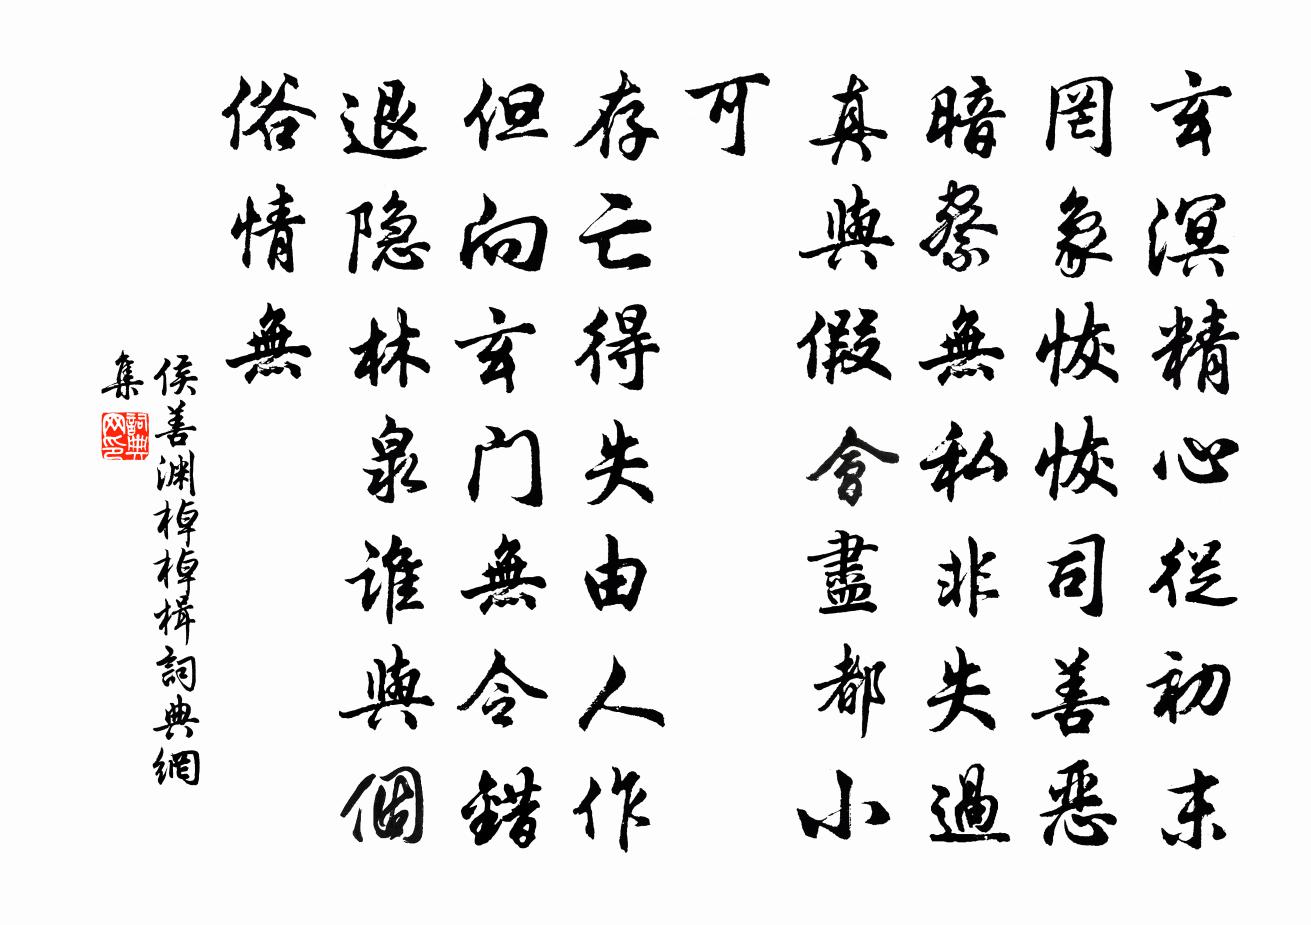 玄溟精心從初末
罔象恢恢司善惡
暗察無私非失過
真與假會盡都小
可
存亡得失由人作
但向玄門無令錯
退隐林泉誰與個
俗情無
侯善渊棹棹楫詞典網
集
詞典网印